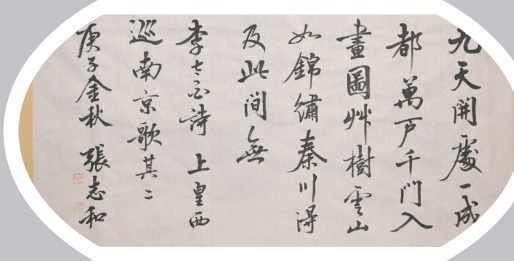 九天開處一成
都萬戶千門入
畫圖艸樹雲山
如錦繡秦川得
及此間無
李太白詩 上皇西
巡南京歌其二
庚子金秋 張志和